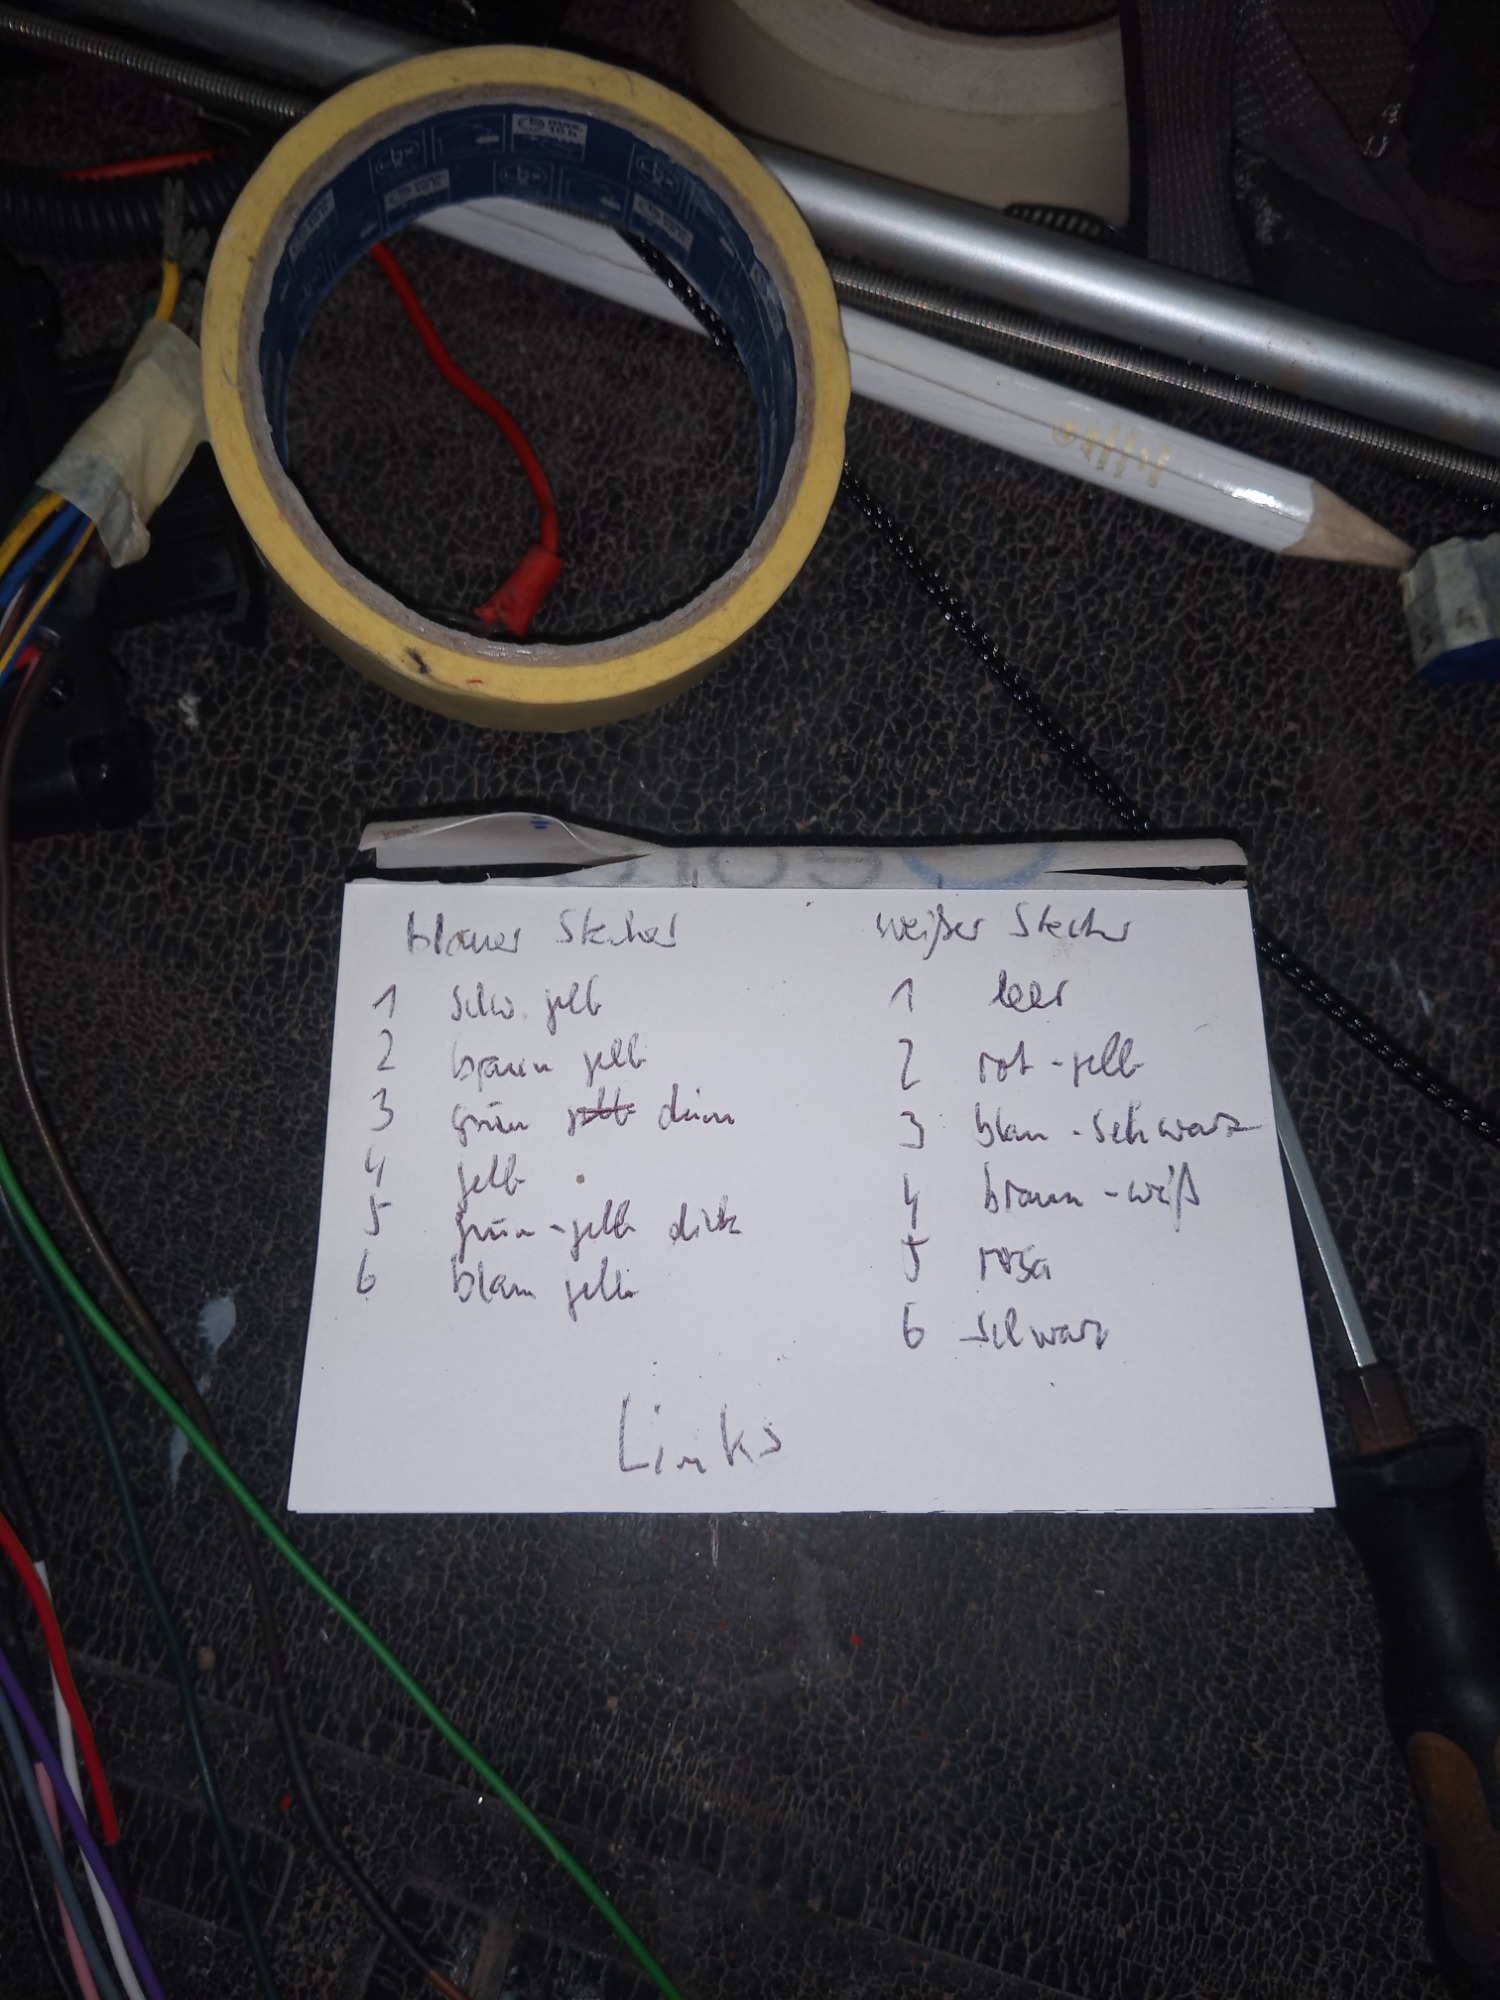 max. 10 h
blauer Stecker
1 schw. gelb
2 braun gelb
3 grün gelb dünn
4 gelb
5 grün-gelb dick
6 blau gelb
weißer Stecker
1 leer
2 rot-gelb
3 blau-schwarz
4 braun-weiß
5 rosa
6 schwarz
Links